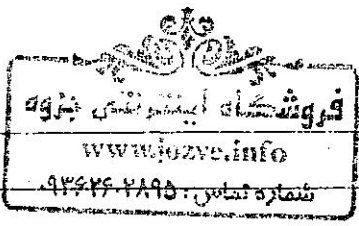 فروشگاه اینترنتی جزوه
www.jozve.info
شماره تماس: ۰۹۳۶۴۲۶۰۲۸۹۵